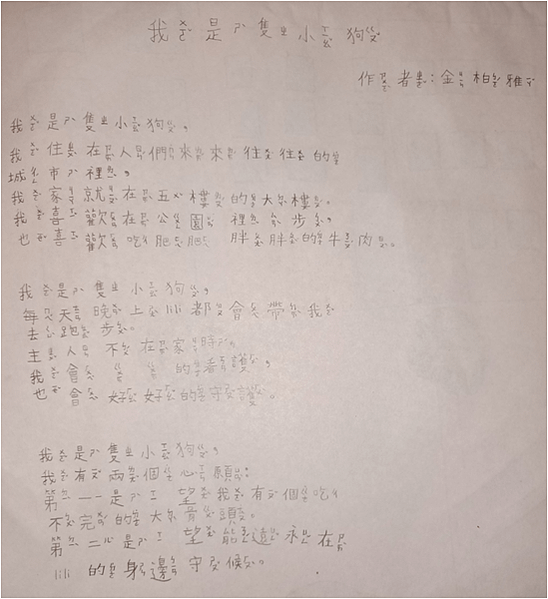 我是隻小狗
作者:金柏雅
我是隻小狗,
我住在人們來來往往的
城市裡,
我家就在五樓的大樓。
我喜歡在公園裡 步,
也喜歡吃肥肥胖胖的牛肉。
我是隻小狗,
每天晚上 都會帶我
去跑步。
主人不在家時,
我會 的看護,
也會好好的守護。
我是隻小狗,
我有兩個心願:
第一是 望我有個吃
不完的大骨頭。
第二是 望能遠永在
的身邊守候。